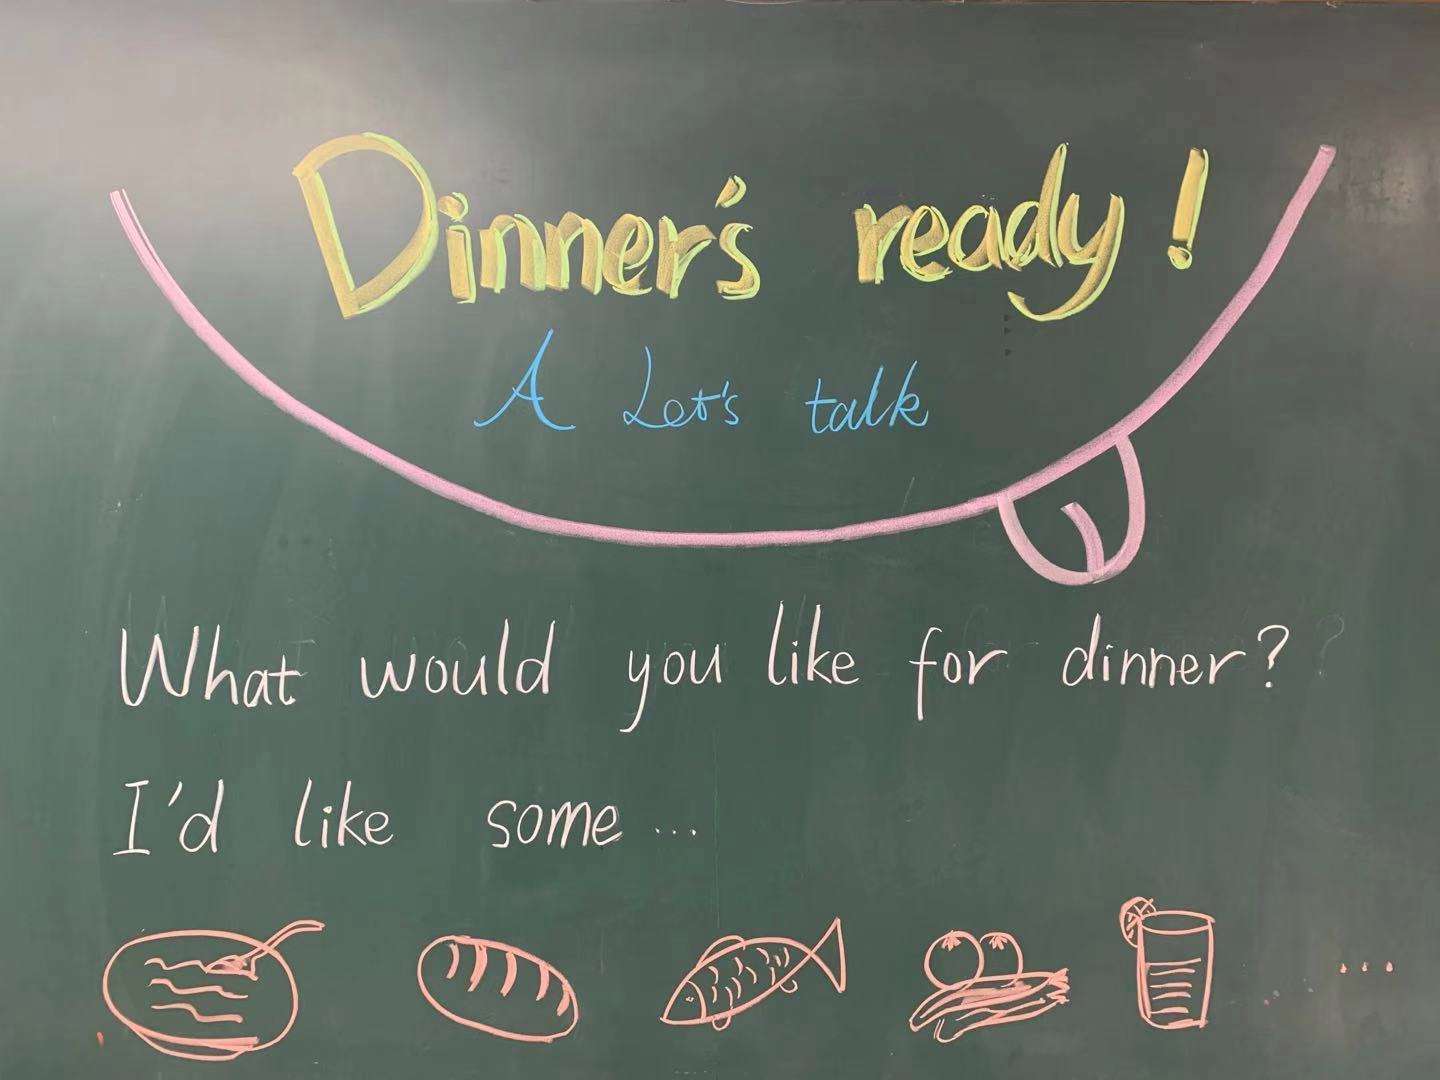 Dinner's ready!
A Let's talk
What would you like for dinner?
I'd like some...
...